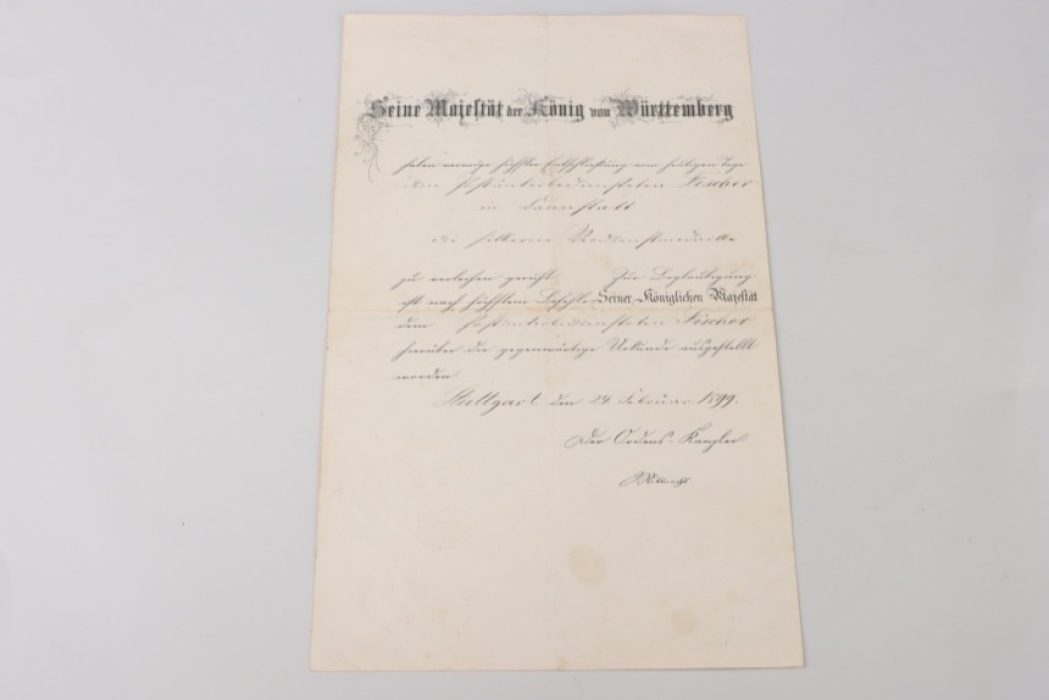 Seine Majestät der König von Württemberg
haben vermöge höchster Entschließung vom heutigen Tage
dem Postunterbediensteten Fischer
in Cannstatt
die silberne Verdienstmedaille
zu verleihen geruht. Zur Beglaubigung
ist nach höchstem Befehle Seiner Königlichen Majestät
dem Postunterbediensteten Fischer
hierüber die gegenwärtige Urkunde ausgestellt
worden.
Stuttgart, den 24. Februar 1899.
Der Ordens-Kanzler